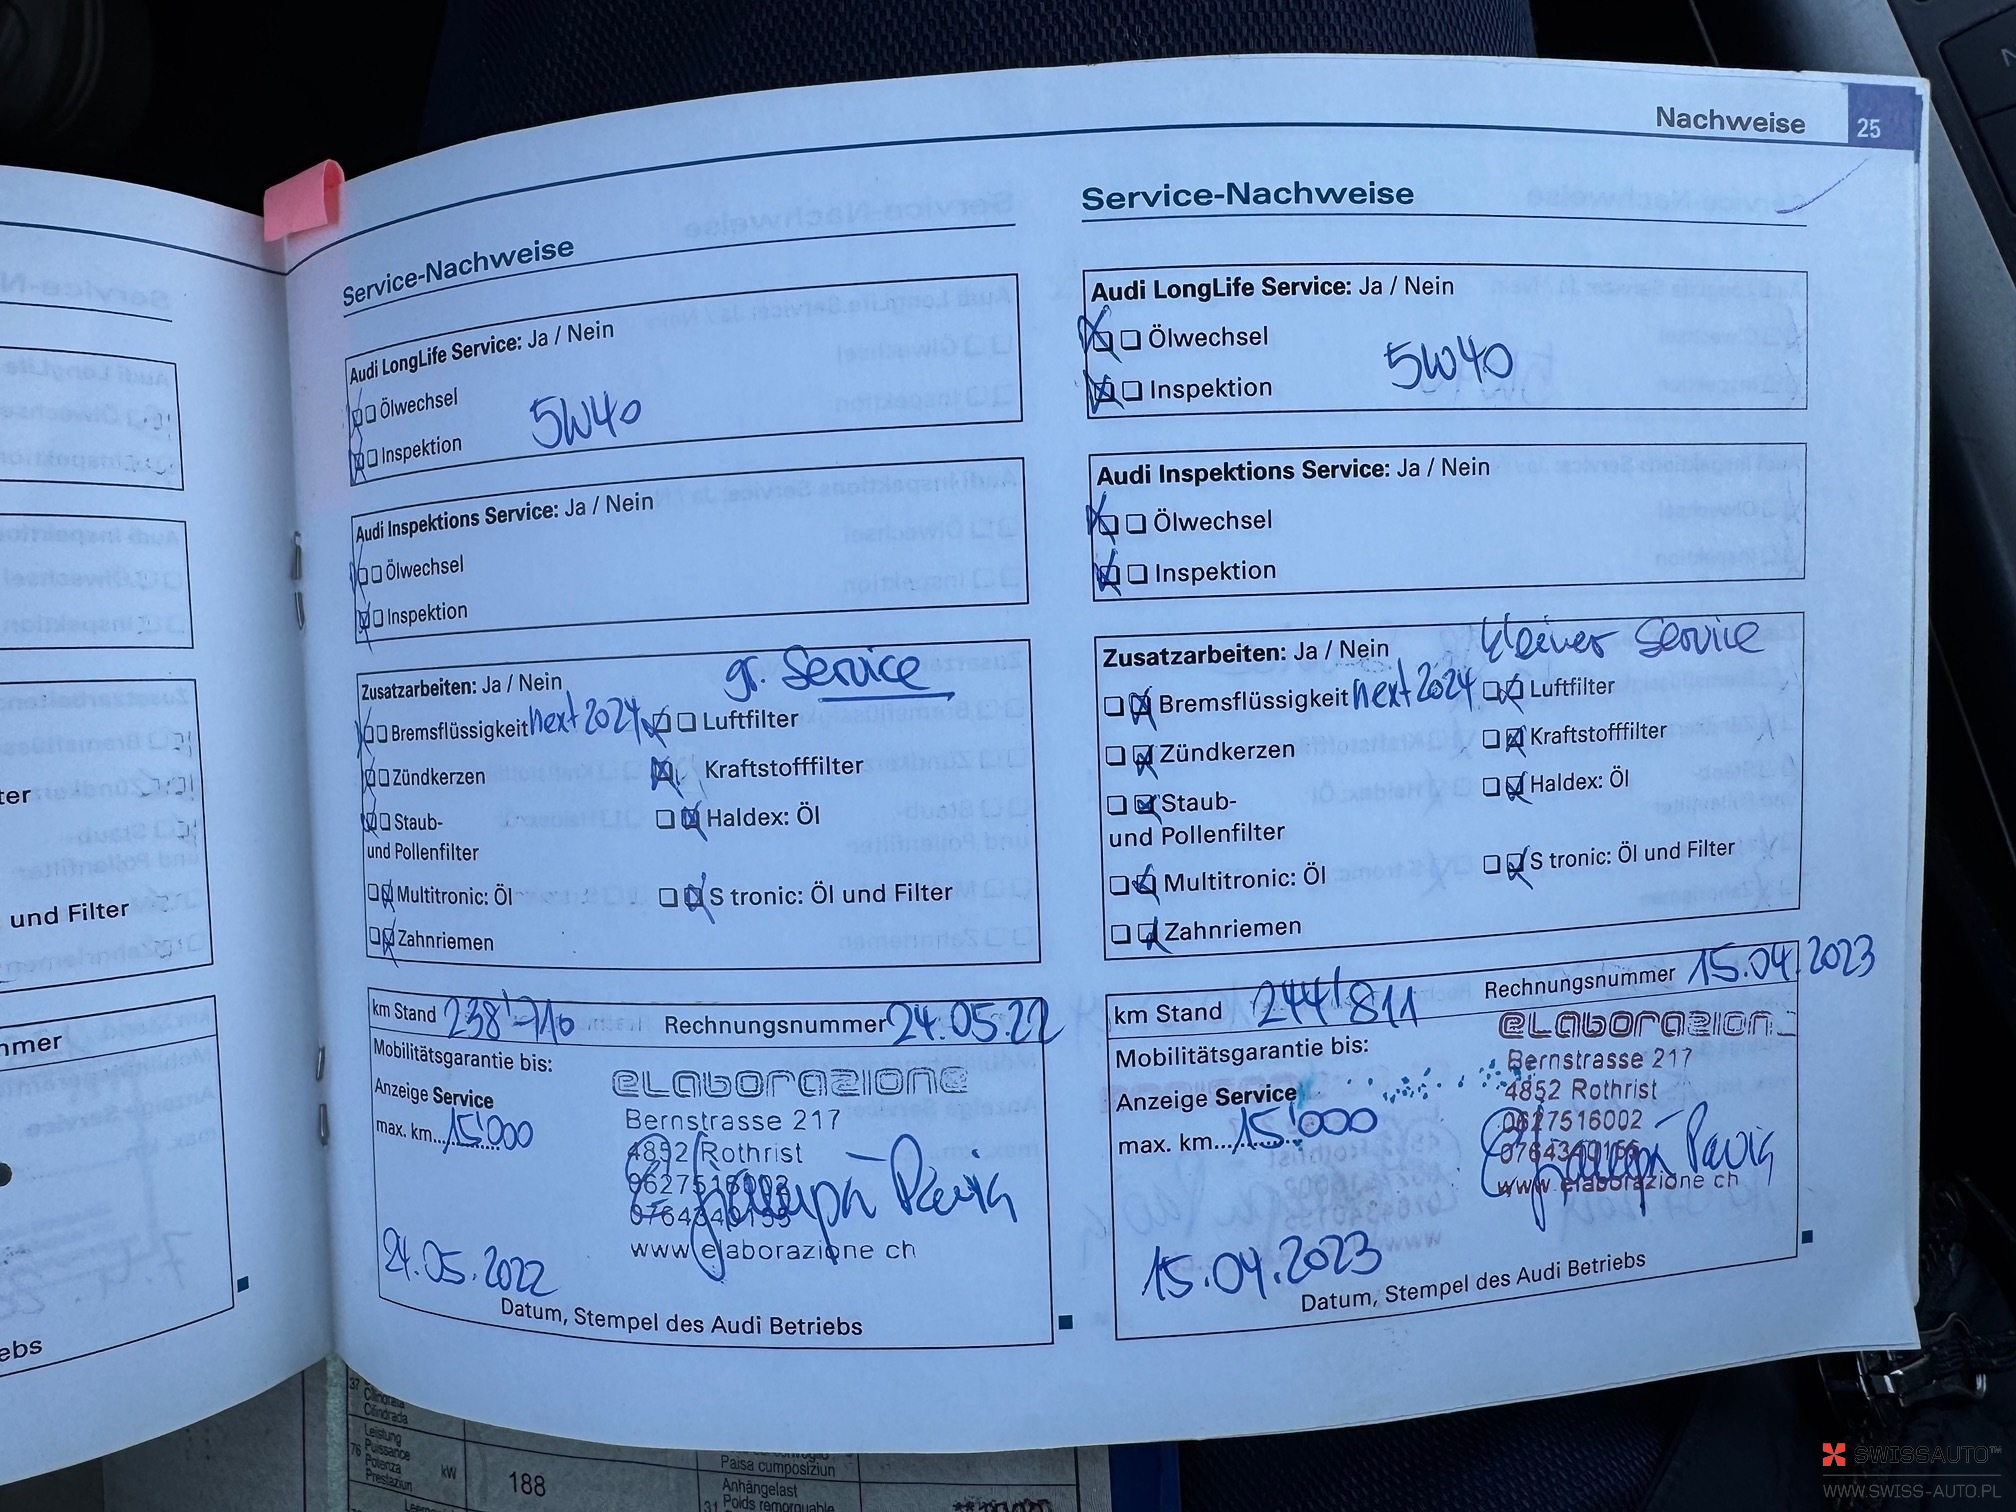 Nachweise 25
Service-Nachweise
Audi LongLife Service: Ja / Nein
Ölwechsel
Inspektion
5W40
Audi Inspektions Service: Ja / Nein
Ölwechsel
Inspektion
Zusatzarbeiten: Ja / Nein
gr. Service
Bremsflüssigkeit next 2024 Luftfilter
Zündkerzen Kraftstofffilter
Staub- Haldex: Öl
und Pollenfilter
Multitronic: Öl S tronic: Öl und Filter
Zahnriemen
km Stand 238'710 Rechnungsnummer 24.05.22
Mobilitätsgarantie bis:
Anzeige Service
max. km....15'000
elaborazione
Bernstrasse 217
4852 Rothrist
0627516002
0764340155
www elaborazione ch
24.05.2022
Datum, Stempel des Audi Betriebs
Service-Nachweise
Audi LongLife Service: Ja / Nein
Ölwechsel
Inspektion
5W40
Audi Inspektions Service: Ja / Nein
Ölwechsel
Inspektion
Zusatzarbeiten: Ja / Nein
kleiner Service
Bremsflüssigkeit next 2024 Luftfilter
Zündkerzen Kraftstofffilter
Staub- Haldex: Öl
und Pollenfilter
Multitronic: Öl S tronic: Öl und Filter
Zahnriemen
km Stand 244'811 Rechnungsnummer 15.04.2023
Mobilitätsgarantie bis:
Anzeige Service
max. km....15'000
elaborazion
Bernstrasse 217
4852 Rothrist
0627516002
0764340155
www elaborazione ch
15.04.2023
Datum, Stempel des Audi Betriebs
ter
und Filter
mmer
ebs
37
Cilindrata
Cilindrada
76 Leistung
Puissance
Potenza
Prestaziun
kW
188
Paisa cumposiziun
31 Anhängelast
Poids remorquable
SWISSAUTO™
WWW.SWISS-AUTO.PL